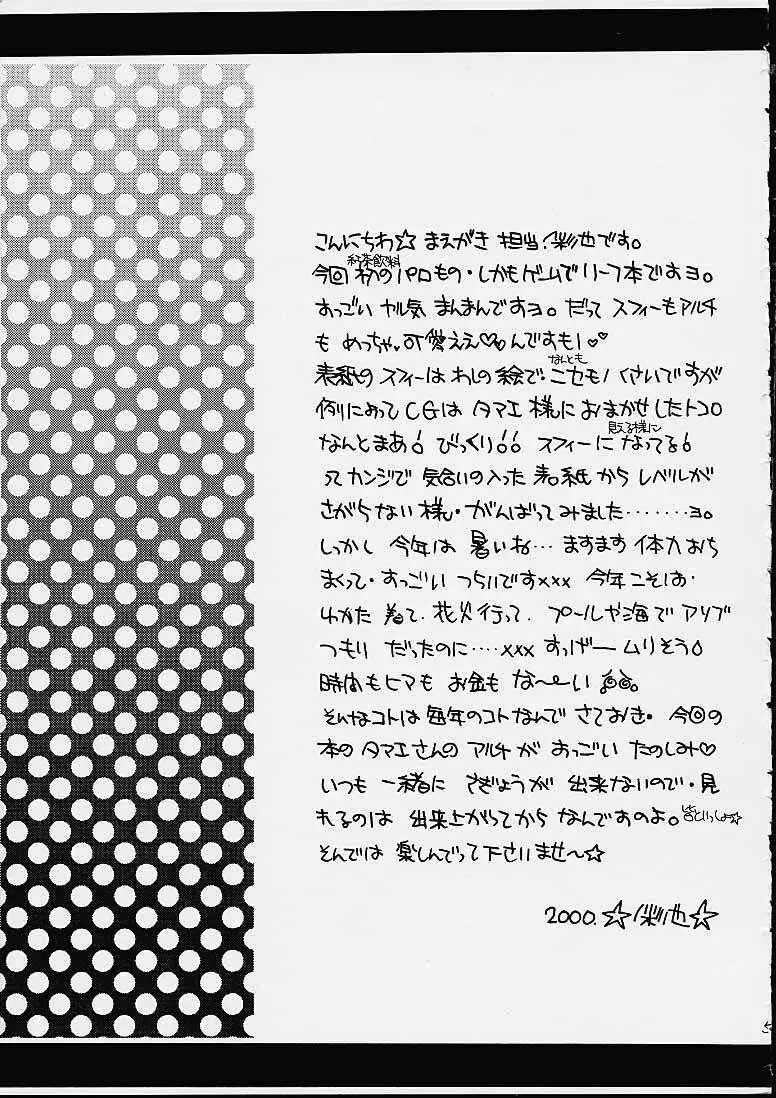 こんにちわ☆ まえがき 担当、彩也です。
紅茶飲料
今回 初のパロもの・しかもゲームでリーフ本ですヨ。
すっごい ヤル気 まんまんですヨ。だって スフィーもアルチ
も めっちゃ可愛ええ♡もんですもん♡♡
なんとも
表紙の スフィーは わしの絵で・ニセモノくさいですが
例によって CGは タマエ様に おまかせしたトコロ
見える様に
なんとまあ! びっくり!! スフィーに なってる!
ってカンジで 気合いの入った 表紙から レベルが
さがらない様・がんばってみました………ヨ。
しっかし 今年は 暑いね… ますます 体力おち
まくって・すっごい つらいですxxx 今年こそは・
ゆかた 着て、花火行って、プールや海で アソブ
つもり だったのに……xxx すっげームリそう
時間も ヒマも お金も な〜い 。
そんなコトは 毎年のコトなんで さておき・ 今回の
本の タマエさんの アルチが すっごい たのしみ♡
いつも 一緒に さぎょうが 出来ないので・見
れるのは 出来上がってから なんですのよ。皆といっしょ☆
そんでは 楽しんでって下さいませ〜☆
2000. ☆彩也☆
5